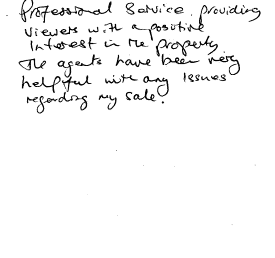 Professional Service, providing
viewers with a positive
Interest in the property
The agents have been very
helpful with any Issues
regarding my sale.